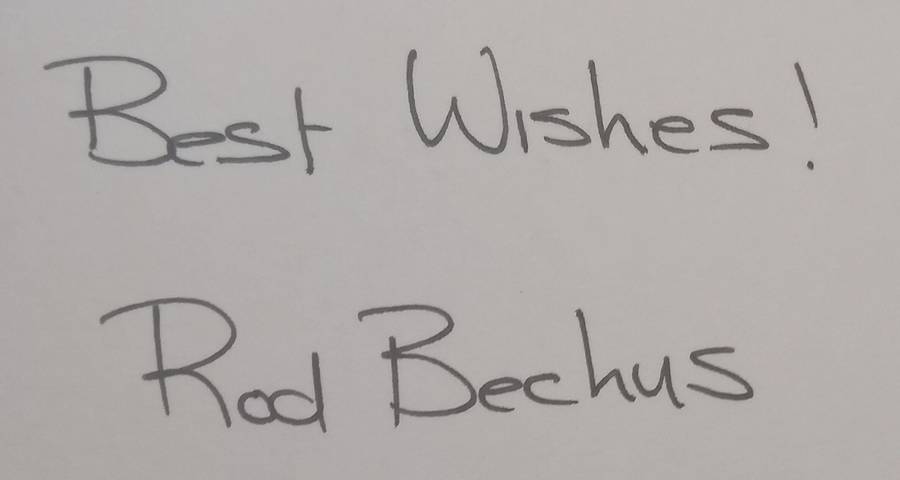 Best Wishes!
Rod Bechus